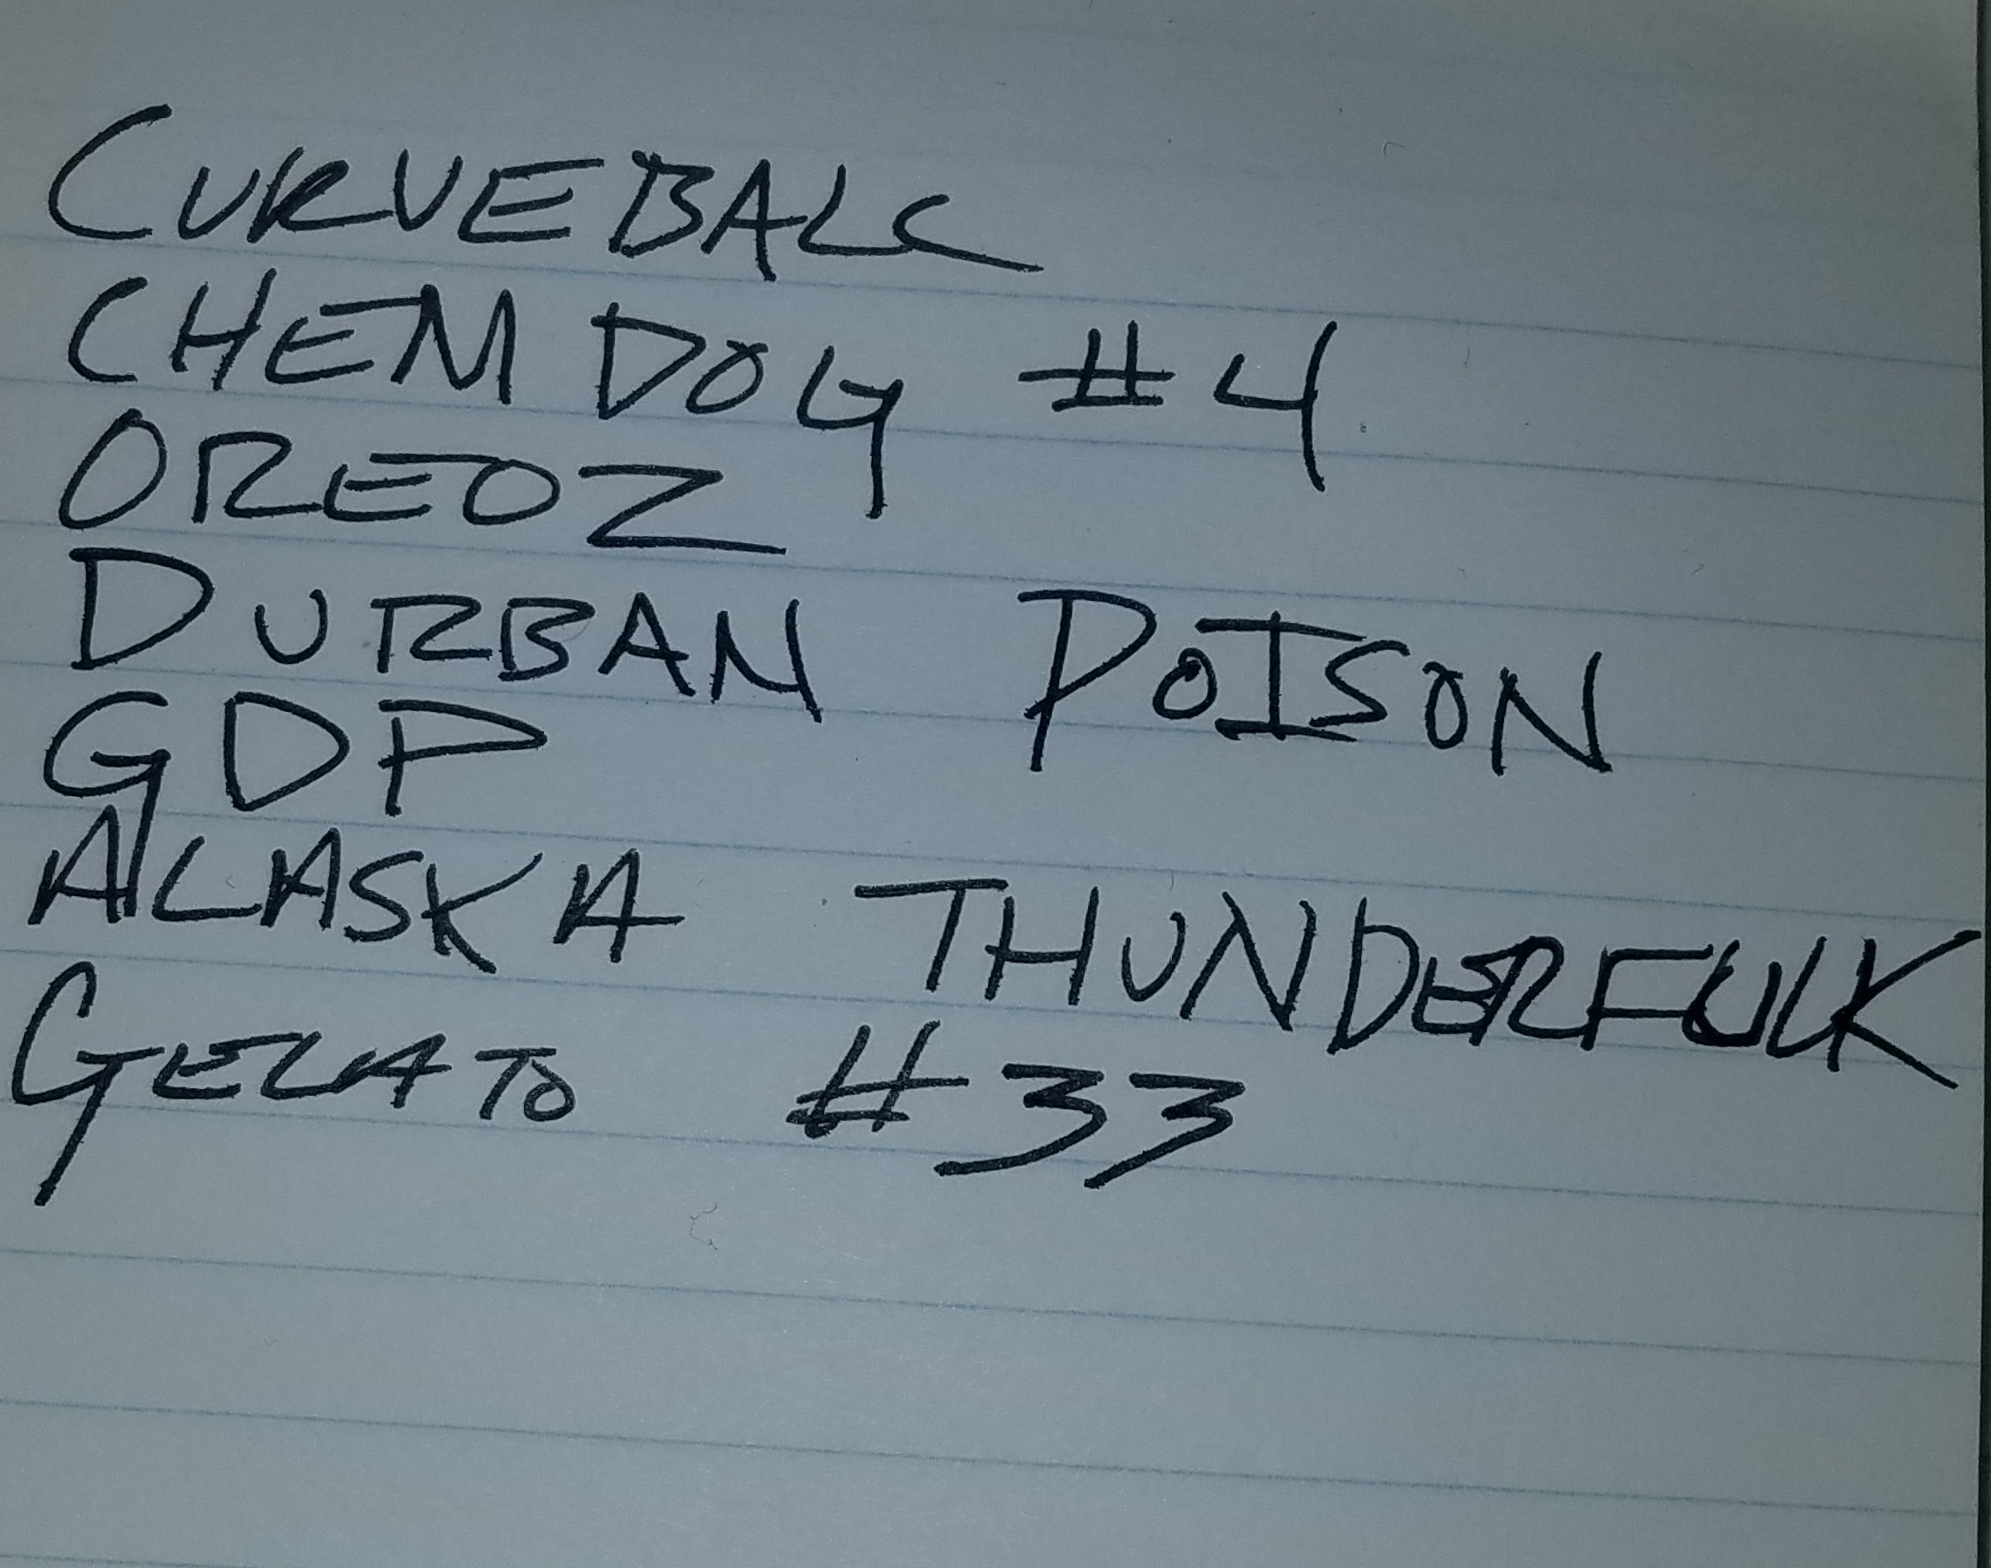 CURVEBALL
CHEM DOG #4
OREOZ
DURBAN POISON
GDP
ALASKA THUNDERFUCK
GELATO #33